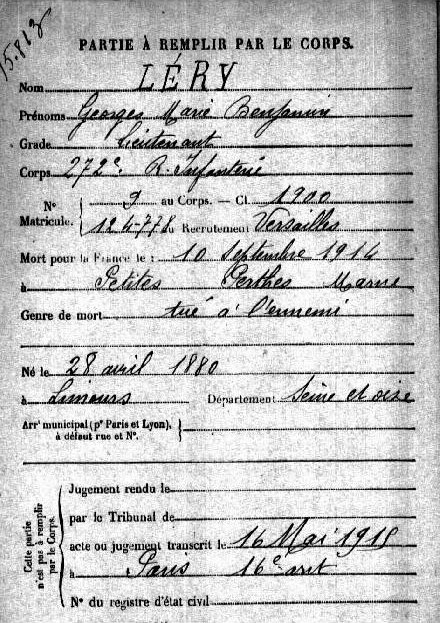 15.813
PARTIE À REMPLIR PAR LE CORPS.
Nom LÉRY
Prénoms Georges Marie Benjamin
Grade Lieutenant
Corps 272e. R. Infanterie
N° Matricule. 9 au Corps. — Cl. 1900
124-778 au Recrutement Versailles
Mort pour la France le : 10 septembre 1914
à Petites Perthes Marne
Genre de mort tué à l'ennemi
Né le 28 avril 1880
à Limours Département Seine et oise
Arrt municipal (pr Paris et Lyon),
à défaut rue et N°.
Cette partie n'est pas à remplir par le Corps.
Jugement rendu le
par le Tribunal de
acte ou jugement transcrit le 16 Mai 1915
à Paris 16e arrt
N° du registre d'état civil